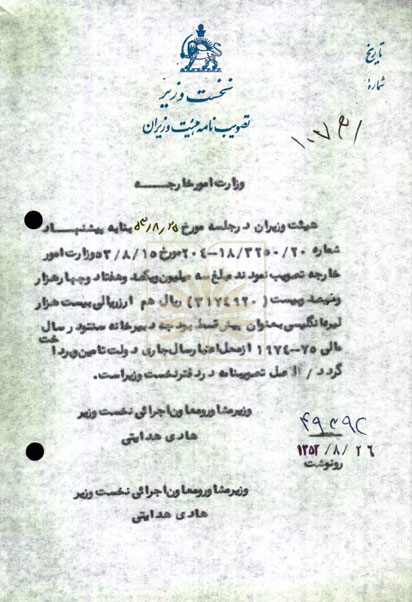 نخست وزیر
تصویب نامه هیئت وزیران
تاریخ
شماره:
وزارت امور خارجـــه
هیئت وزیران در جلسه مورخ ۵۳/۸/۲۵ بنابه پیشنهاد
شماره ۲۰/۳۲۵۰-۱۸-۲۰۴ مورخ ۵۳/۸/۱۵ وزارت امور
خارجه تصویب نمودند مبلغ سه میلیون ویکصد وهفتاد وچهارهزار
ونهصد وبیست (۳۱۷۴۹۲۰) ریال هم ارز ریالی بیست هزار
لیره انگلیسی بعنوان پیش قسط بودجه دبیرخانه سنتو در سال
مالی ۷۵-۱۹۷۴ از محل اعتبار سال جاری دولت تامین وپرداخت
گردد / اصل تصویبنامه در دفتر نخست وزیر است.
وزیر مشاور و معاون اجرائی نخست وزیر
هادی هدایتی
۴۹۳۹۲
۱۳۵۳/۸/۲۶
رونوشت
وزیر مشاور و معاون اجرائی نخست وزیر
هادی هدایتی